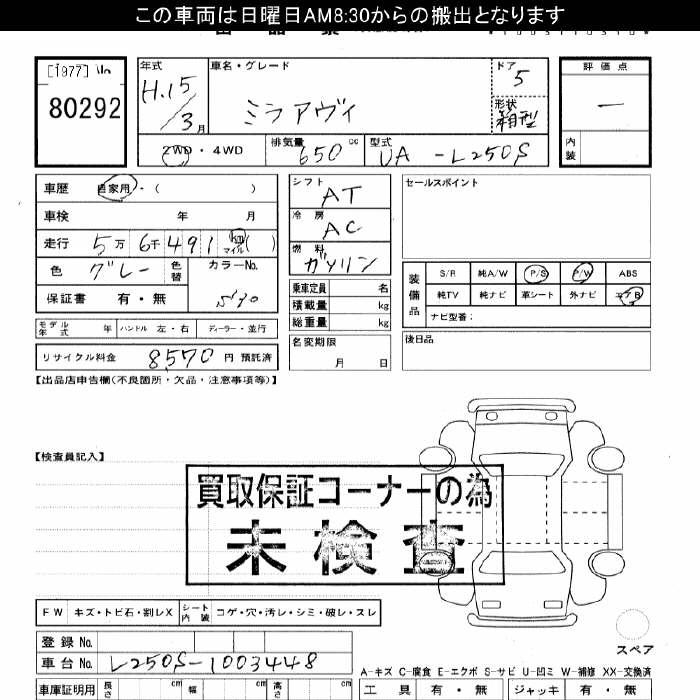 この車両は日曜日AM8:30からの搬出となります
[1977]
80292
年式
H.15/3月
車名・グレード
ミラアヴィ
ドア
5
形状
箱型
評価点
一
内装
2WD・4WD
排気量
650cc
型式
UA-L250S
車歴 自家用・( )
車検 年 月
走行 5万6千491km マイル( )
色 グレー 色替
カラーNo.
保証書 有・無
シフト
AT
冷房
AC
燃料
ガソリン
乗車定員 名
積載量 kg
総重量 kg
名変期限
月 日
セールスポイント
装備品
S/R 純A/W P/S P/W ABS
純TV 純ナビ 革シート 外ナビ エアB
ナビ型番:
後日品
モデル年式 年 ハンドル 左・右 ディーラー・並行
リサイクル料金 8570円 預託済
【出品店申告欄(不良個所・欠品・注意事項等)】
【検査員記入】
買取保証コーナーの為
未検査
FW キズ・トビ石・割レX シート内装 コゲ・穴・汚レ・シミ・破レ・スレ
スペア
登録No.
車台No. L250S-1003448
A-キズ C-腐食 E-エクボ S-サビ U-凹ミ W-補修 XX-交換済
車庫証明用 長さ cm 幅 cm 高さ cm
工具 有・無 ジャッキ 有・無